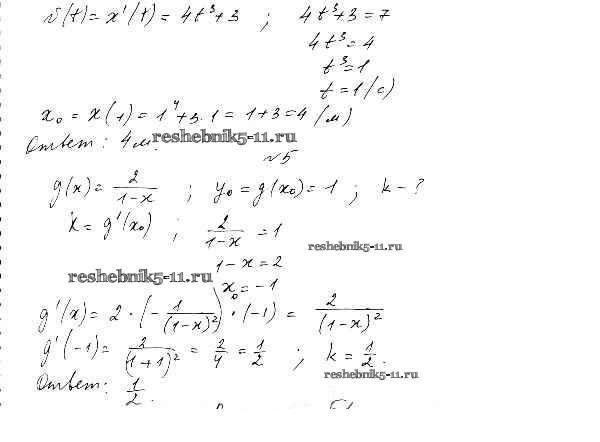 v(t) = x'(t) = 4t³+3 ; 4t³+3 = 7
4t³ = 4
t³ = 1
t = 1 (с)
x₀ = x(1) = 1⁴+3·1 = 1+3 = 4 (м)
Ответ: 4 м. reshebnik5-11.ru
№5
g(x) = 2/(1-x) ; y₀ = g(x₀) = 1 ; k - ?
k = g'(x₀) ; 2/(1-x) = 1
reshebnik5-11.ru
1-x = 2
reshebnik5-11.ru
x₀ = -1
g'(x) = 2·(-1/(1-x)²)·(-1) = 2/(1-x)²
g'(-1) = 2/(1+1)² = 2/4 = 1/2 ; k = 1/2.
reshebnik5-11.ru
Ответ: 1/2.